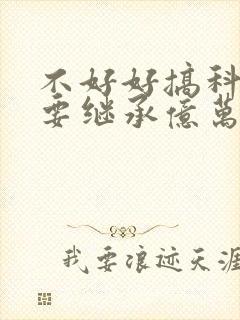 不好好搞科
要继承億萬
我要浪迹天涯